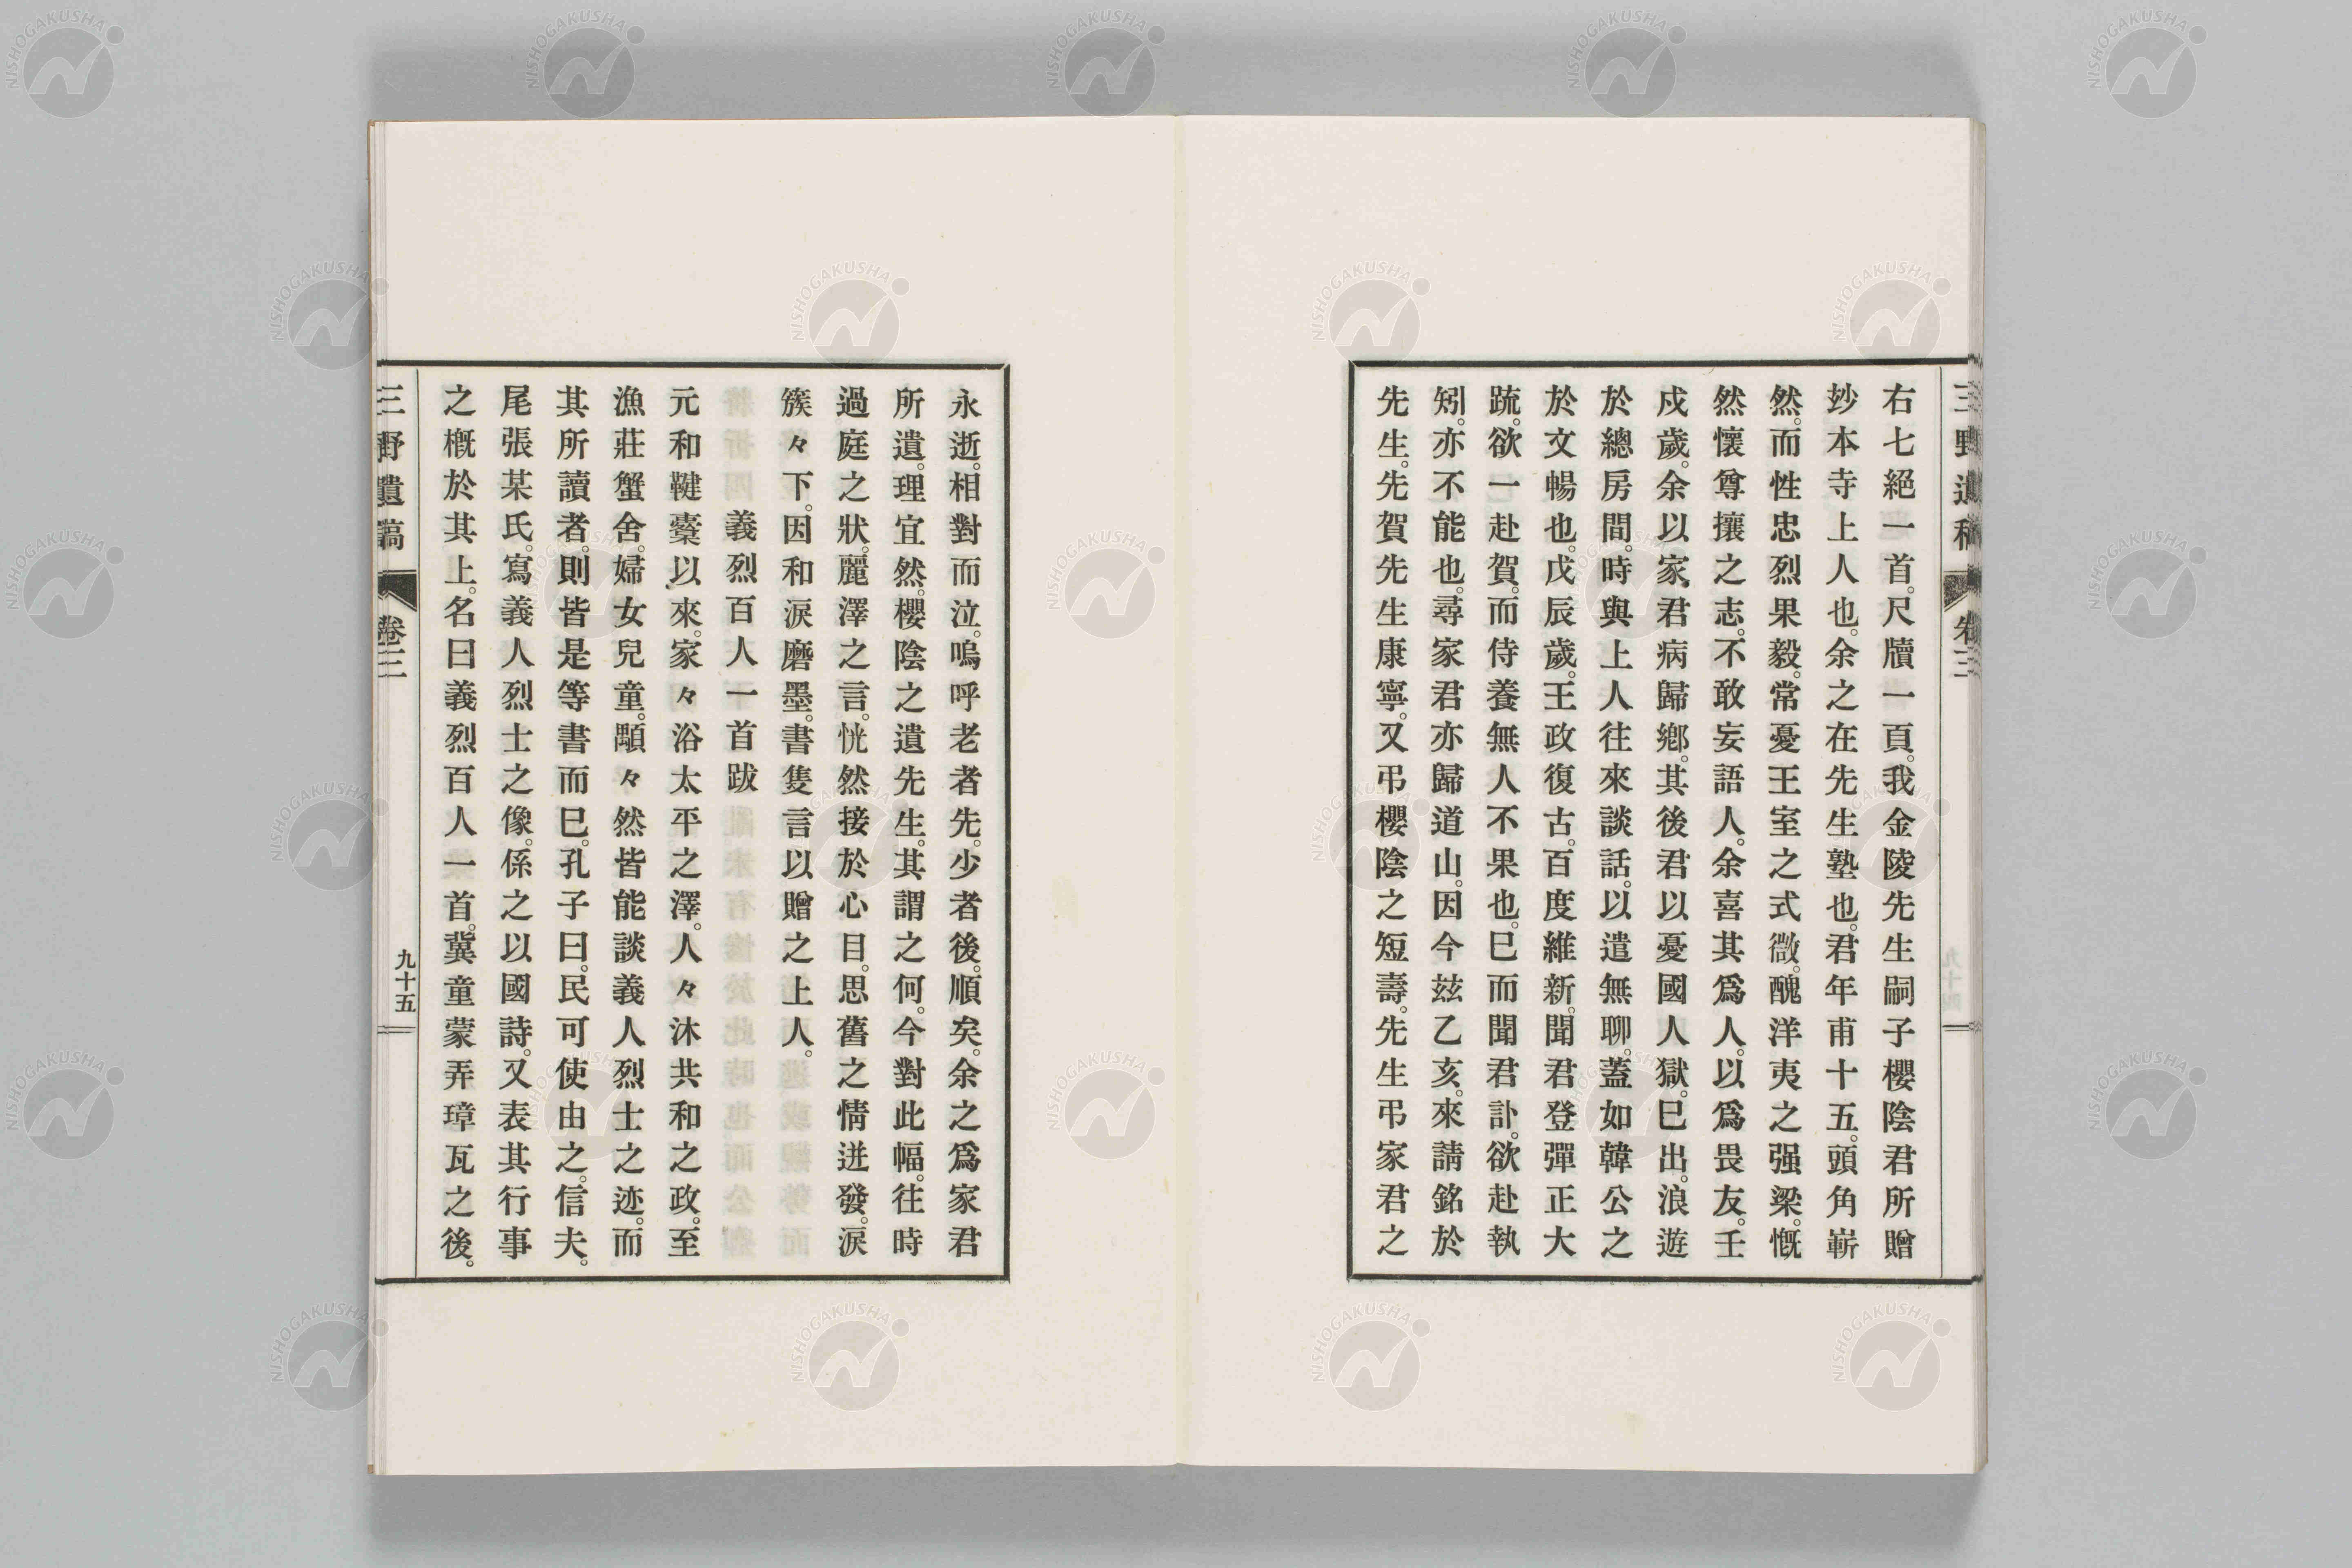 右七絕一首。尺牘一頁。我金陵先生嗣子櫻陰君所贈
抄本寺上人也。余之在先生塾也。君年甫十五。頭角嶄
然。而性忠烈果毅。常憂王室之式微。醜洋夷之强梁。慨
然懷尊攘之志。不敢妄語人。余喜其爲人。以爲畏友。壬
戍歲。余以家君病歸鄕。其後君以憂國人獄。已出。浪遊
於總房間。時與上人往來談話。以遣無聊。蓋如韓公之
於文暢也。戊辰歲。王政復古。百度維新。聞君登彈正大
疏。欲一赴賀。而侍養無人不果也。已而聞君訃。欲赴執
矧。亦不能也。尋家君亦歸道山。因今玆乙亥。來請銘於
先生。先賀先生康寧。又弔櫻陰之短壽。先生弔家君之
永逝。相對而泣。嗚呼老者先。少者後。順矣。余之爲家君
所遺。理宜然。櫻陰之遺先生。其謂之何。今對此幅。往時
過庭之狀。麗澤之言。恍然接於心目。思舊之情迸發。淚
簇々下。因和淚磨墨。書隻言以贈之上人。
義烈百人一首跋
元和鞬櫜以來。家々浴太平之澤。人々沐共和之政。至
漁莊蟹舍。婦女兒童。顒々然皆能談義人烈士之迹。而
其所讀者。則皆是等書而已。孔子曰。民可使由之。信夫。
尾張某氏。寫義人烈士之像。係之以國詩。又表其行事
之槪於其上。名曰義烈百人一首。冀童蒙弄璋瓦之後。
三野遺稿 卷三 九十五